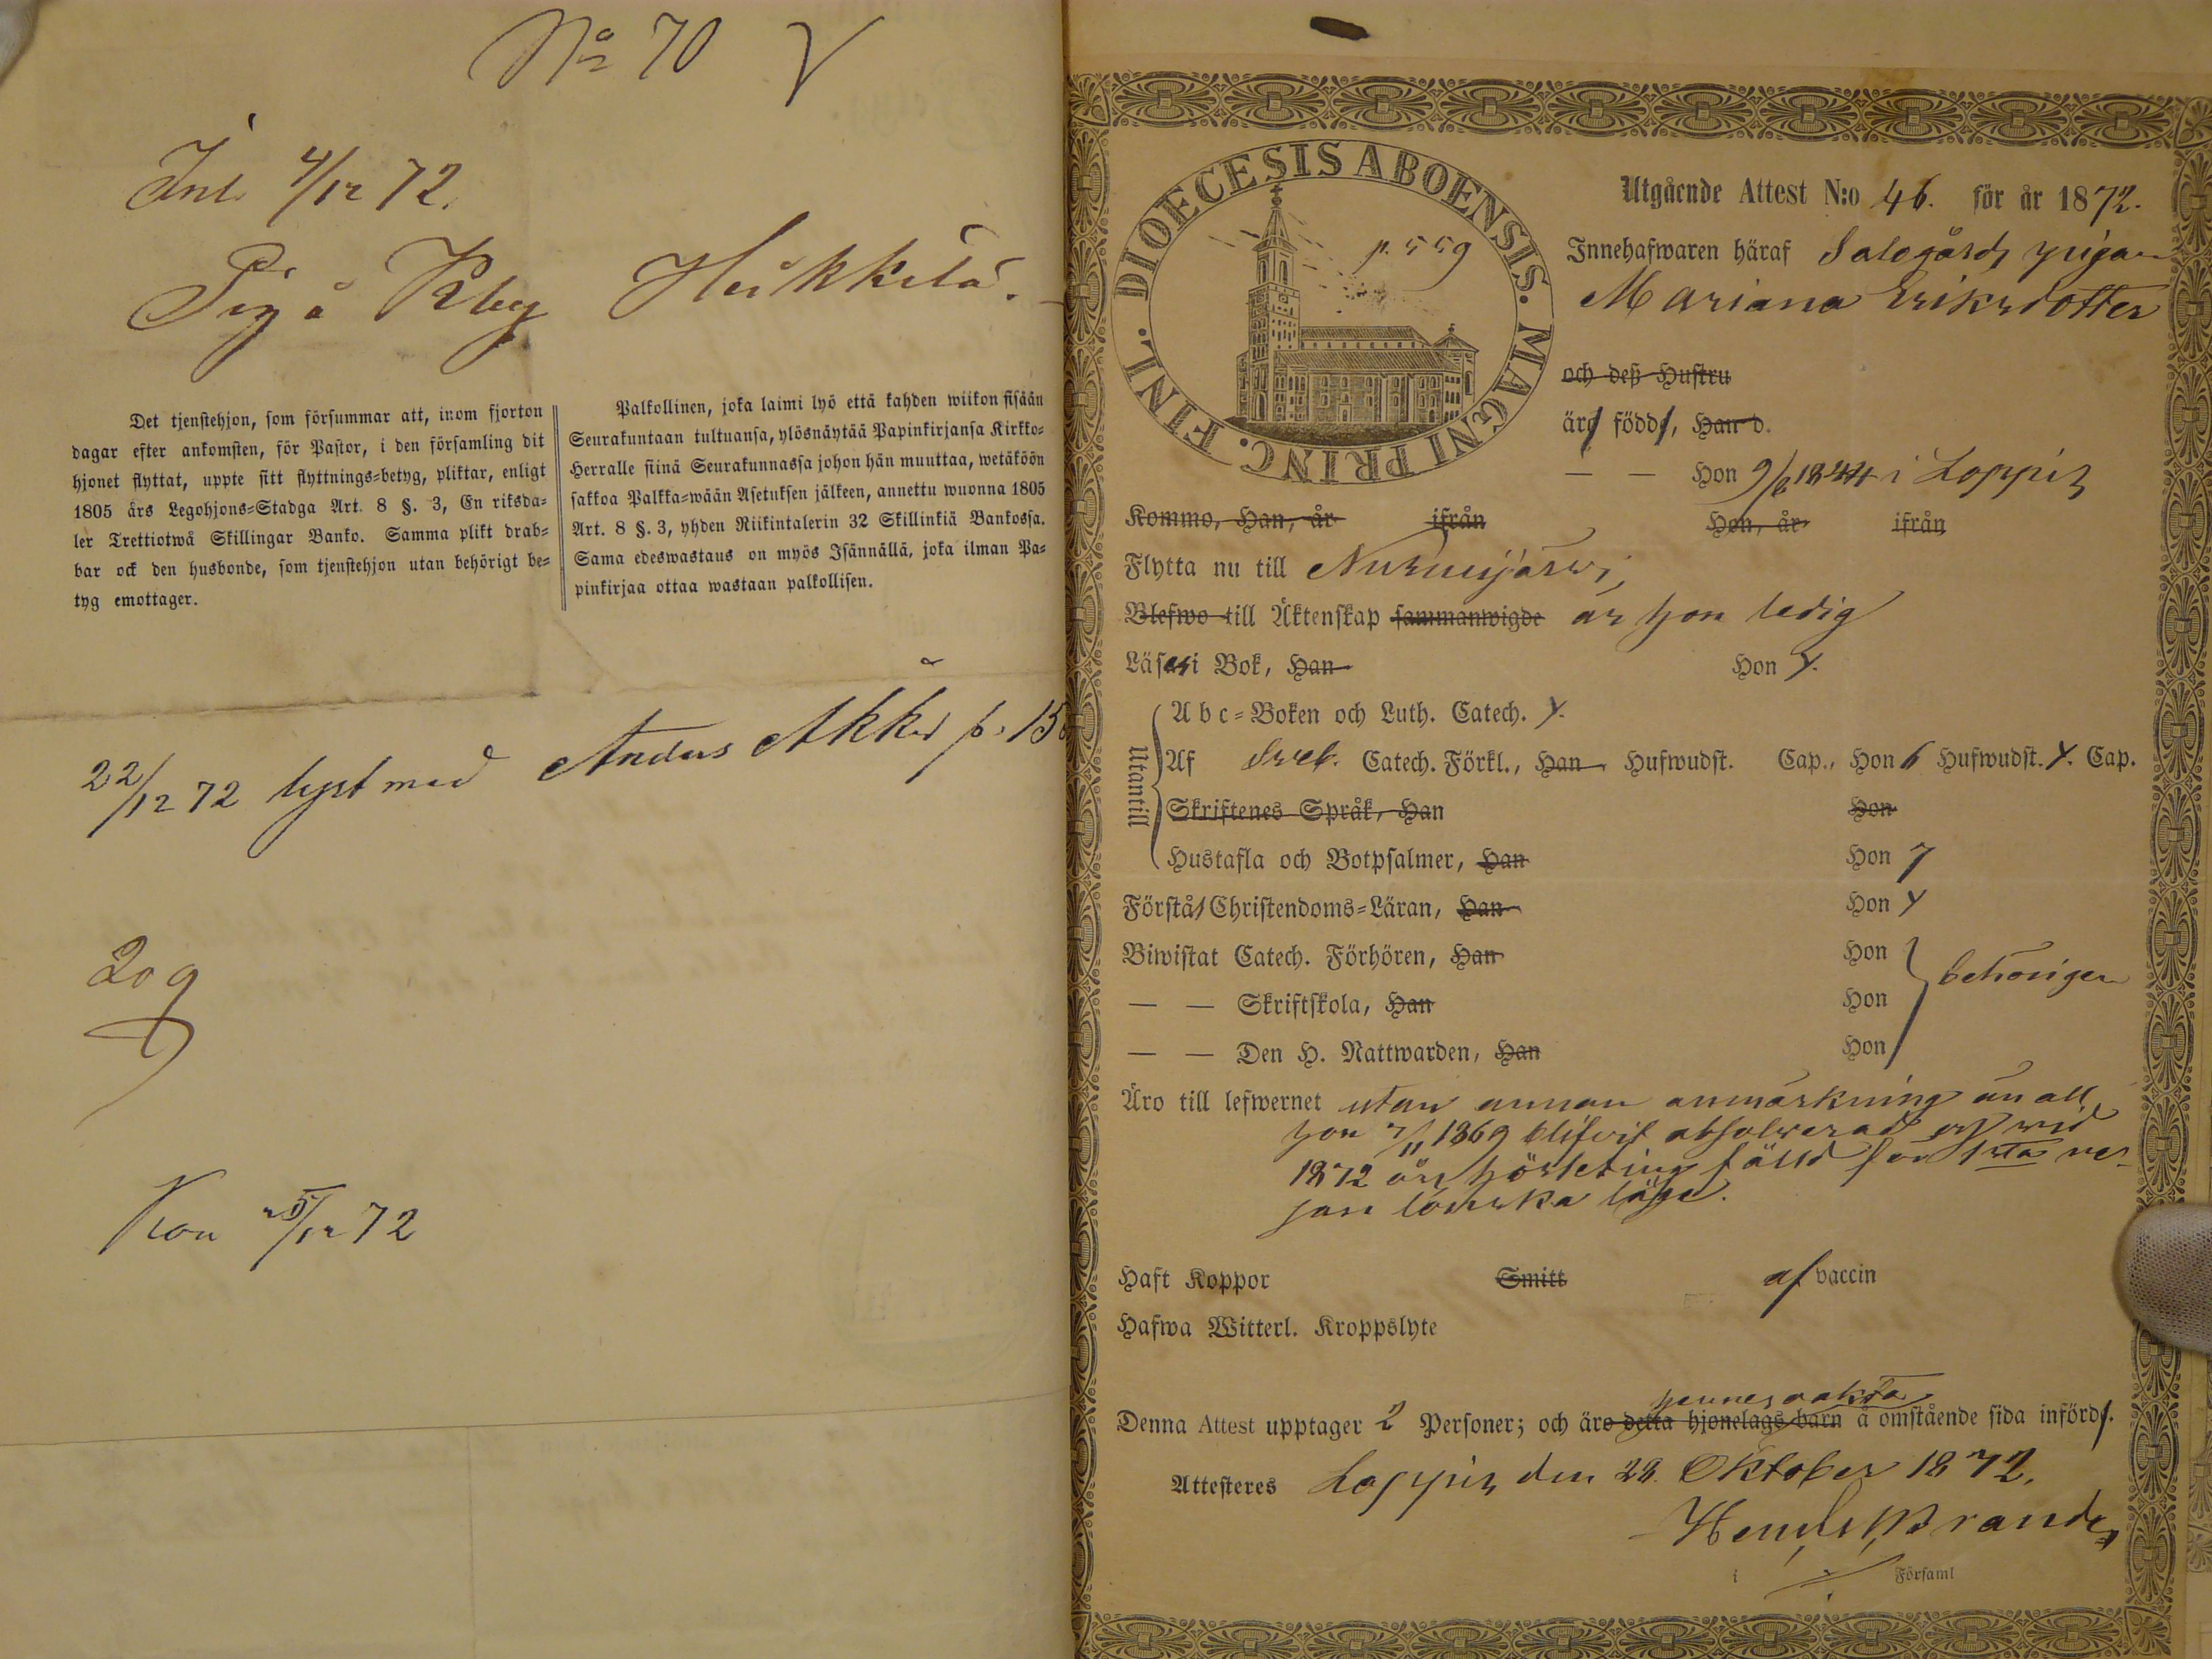 No 70
Inl. 4/12 72.
Pig å Kby Heikkilä.
Det tjenstehjon, som försummar att, inom fjorton
dagar efter ankomsten, för Pastor, i den församling dit
hjonet flyttat, uppte sitt flyttnings=betyg, pliktar, enligt
1805 års Legohjons=Stadga Art. 8 §. 3, En riksda=
ler Trettiotwå Skillingar Banko. Samma plikt drab=
bar ock den husbonde, som tjenstehjon utan behörigt be=
tyg emottager.
Palkollinen, joka laimi lyö että kahden wiikon sisään
Seurakuntaan tultuansa, ylösnäytää Papinkirjansa Kirkko=
Herralle siinä Seurakunnassa johon hän muuttaa, wetäköön
sakkoa Palkka=wään Asetuksen jälkeen, annettu wuonna 1805
Art. 8 §. 3, yhden Riikintalerin 32 Skillinkiä Bankossa.
Sama edeswastaus on myös Isännällä, joka ilman Pa=
pinkirjaa ottaa wastaan palkollisen.
22/12 72 lyst med Anders
209
Kon 25/12 72
DIOECESIS ABOENSIS. MAGNI PRINC. FINL.
p. 559
Utgående Attest N:o 46. för år 1872.
Innehafwaren häraf Salogårds pigan
Mariana Eriksdotter
och deß Hustru
äro födde, Han d.
— — Hon 9/6 1844 i Loppis
Kommo, Han, år ifrån Hon, år ifrån
Flytta nu till Nurmijärwi,
Blefwo till Äktenskap sammanwigde är hon ledig
Läser i Bok, Han Hon y.
Utantill
A b c=Boken och Luth. Catech. y.
Af Sveb. Catech. Förkl., Han Hufwudst. Cap., Hon 6 Hufwudst. y. Cap.
Skriftenes Språk, Han Hon
Hustafla och Botpsalmer, Han Hon 7
Förstå Christendoms=Läran, Han Hon y
Biwistat Catech. Förhören, Han Hon
— — Skriftskola, Han Hon behörigen
— — Den H. Nattwarden, Han Hon
Äro till lefwernet utan annan anmärkning än att
hon 7/11 1869 blifvit absolverad och wid
1872 års hösteting fälld för 1sta resan lönska läge.
Haft Koppor Smitt af vaccin
Hafwa Witterl. Kroppslyte
hennes oäkta
Denna Attest upptager 2 Personer; och äro detta hjonelags barn å omstående sida införde.
Attesteres Loppis den 28. Oktober 1872.
i Församl